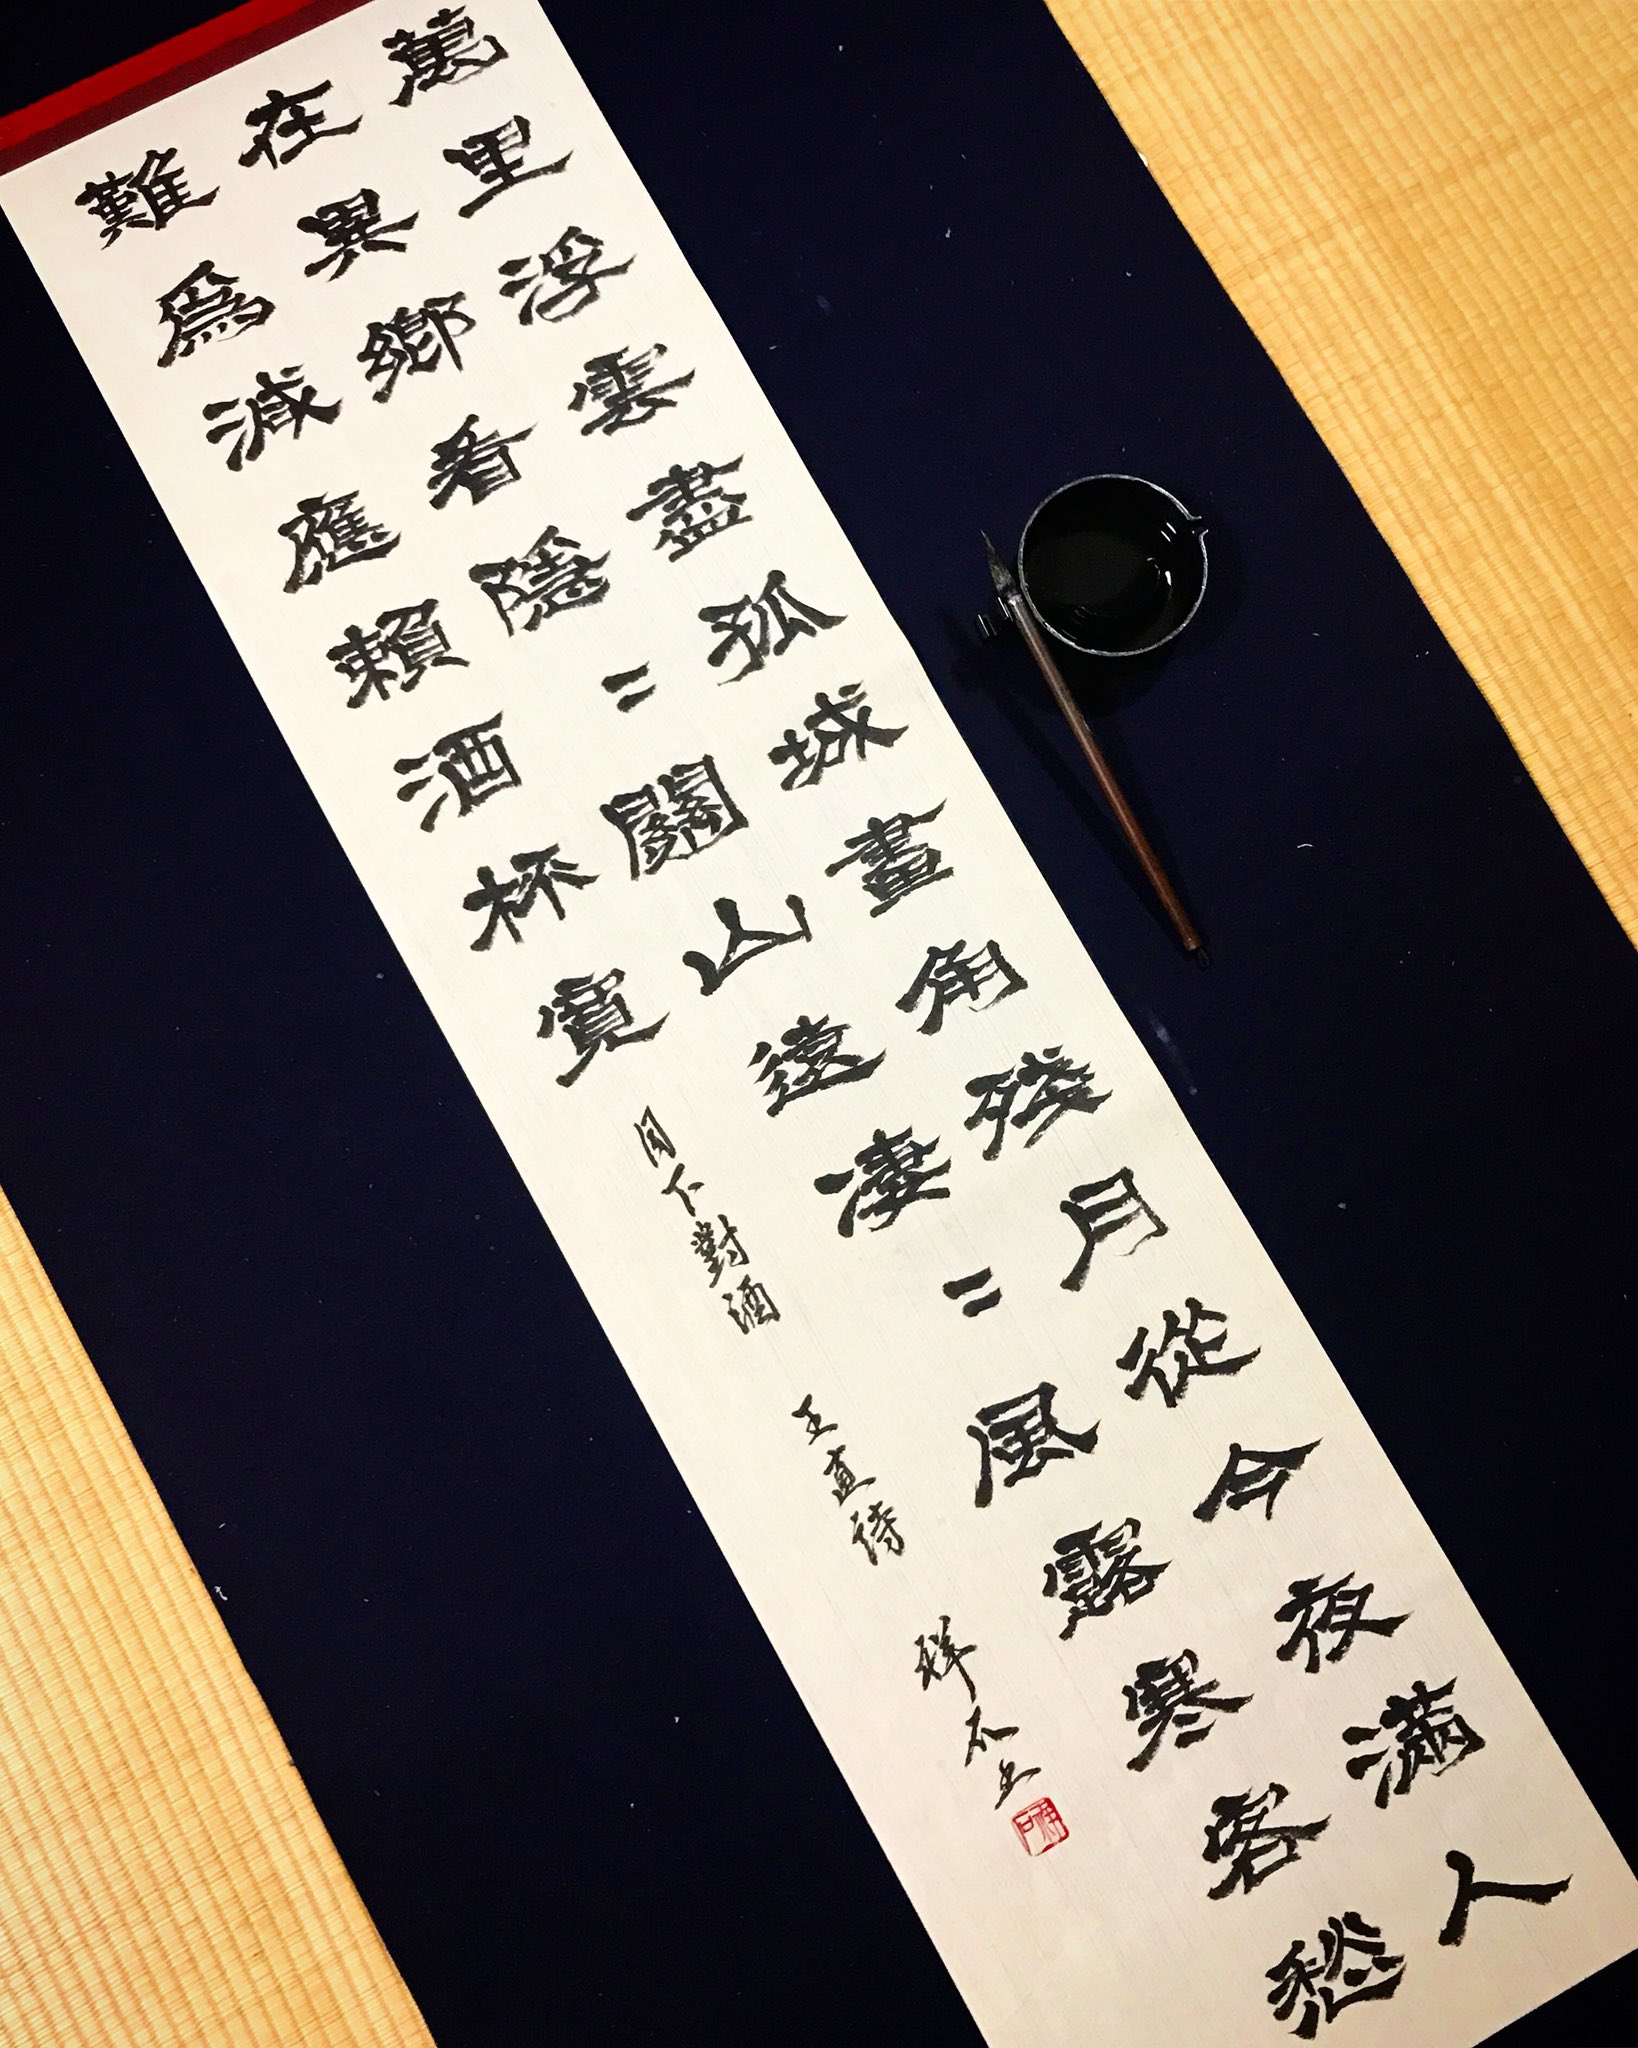 萬里浮雲盡孤城畫角殘月從今夜滿人
在異鄉看隱〻關山遠凄〻風露寒客愁
難爲減應賴酒杯寬
月下對酒 王直詩 祥石書